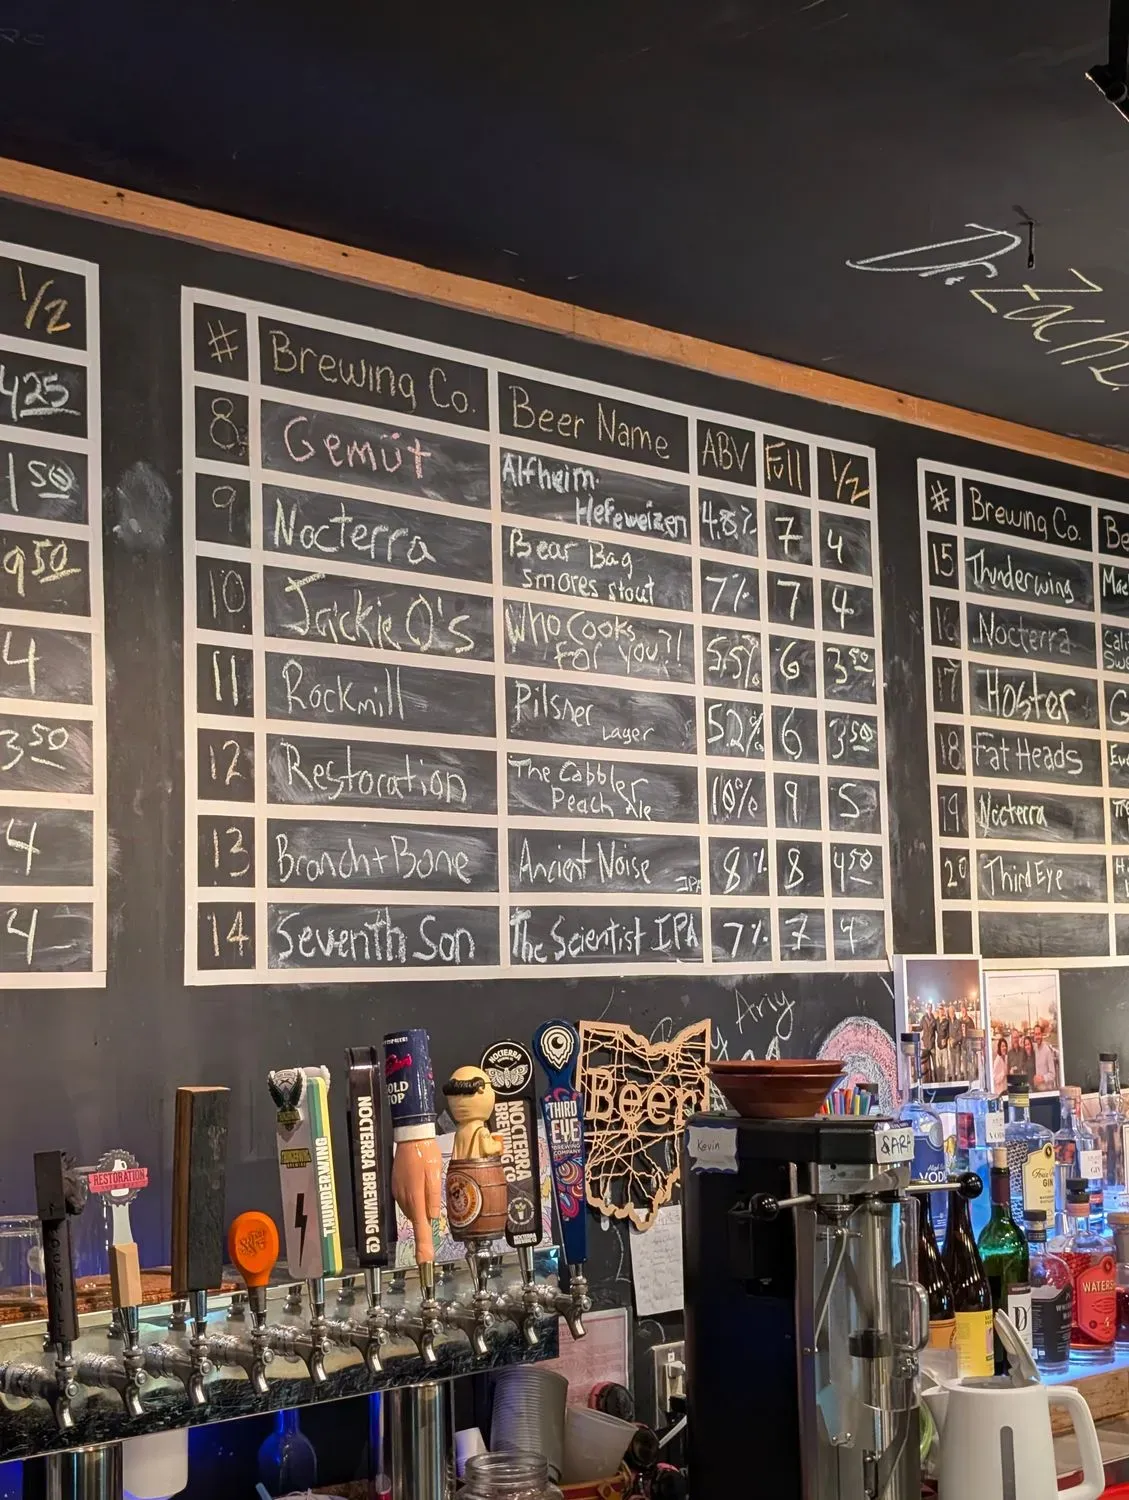 Dr. Zach
1/2
4 25
1 50
9 50
4
3 50
4
4
# Brewing Co. Beer Name ABV Full 1/2
8 Gemüt Alfheim Hefeweizen 4.8% 7 4
9 Nocterra Bear Bag smores stout 7% 7 4
10 Jackie O's Who Cooks for you?! 5.5% 6 3 50
11 Rockmill Pilsner Lager 5.2% 6 3 50
12 Restoration The Cobbler Peach Ale 10% 9 5
13 Branch + Bone Ancient Noise IPA 8% 8 4 50
14 Seventh Son The Scientist IPA 7% 7 4
# Brewing Co. Be
15 Thunderwing Mac
16 Nocterra
17 Hoster G
18 Fat Heads
19 Nocterra
20 Third Eye H
Ariy
RESTORATION
THUNDERWING
NOCTERRA BREWING CO
OLD
TOP
NOCTERRA
NOCTERRA
BREWING CO
THIRD
EYE
BREWING
COMPANY
Beer
Kevin
SARA
VODK
GIN
WATER